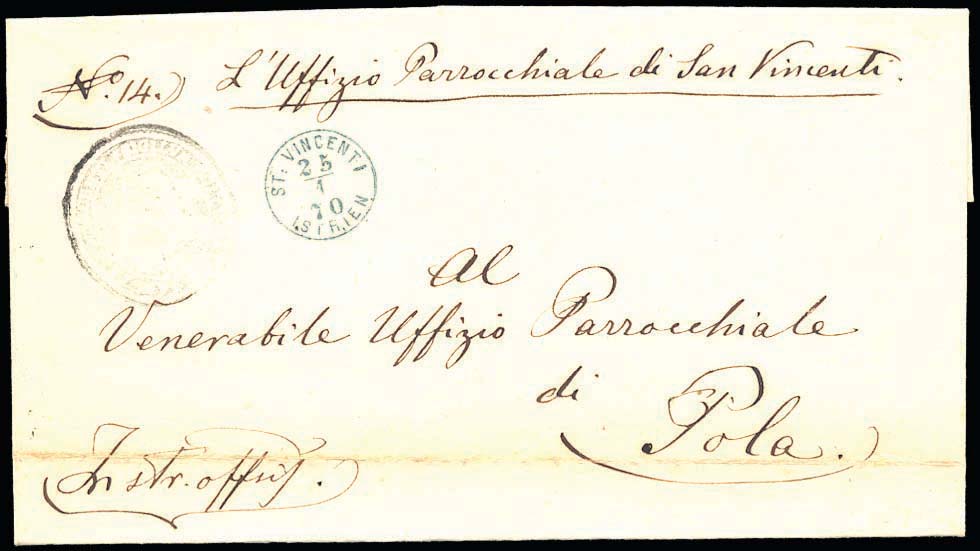 No. 14.
L'Uffizio Parrocchiale di San Vincenti.
ST. VINCENTI
25
1
70
ISTRIEN
Al
Venerabile Uffizio Parrocchiale
di
Pola.
In str.